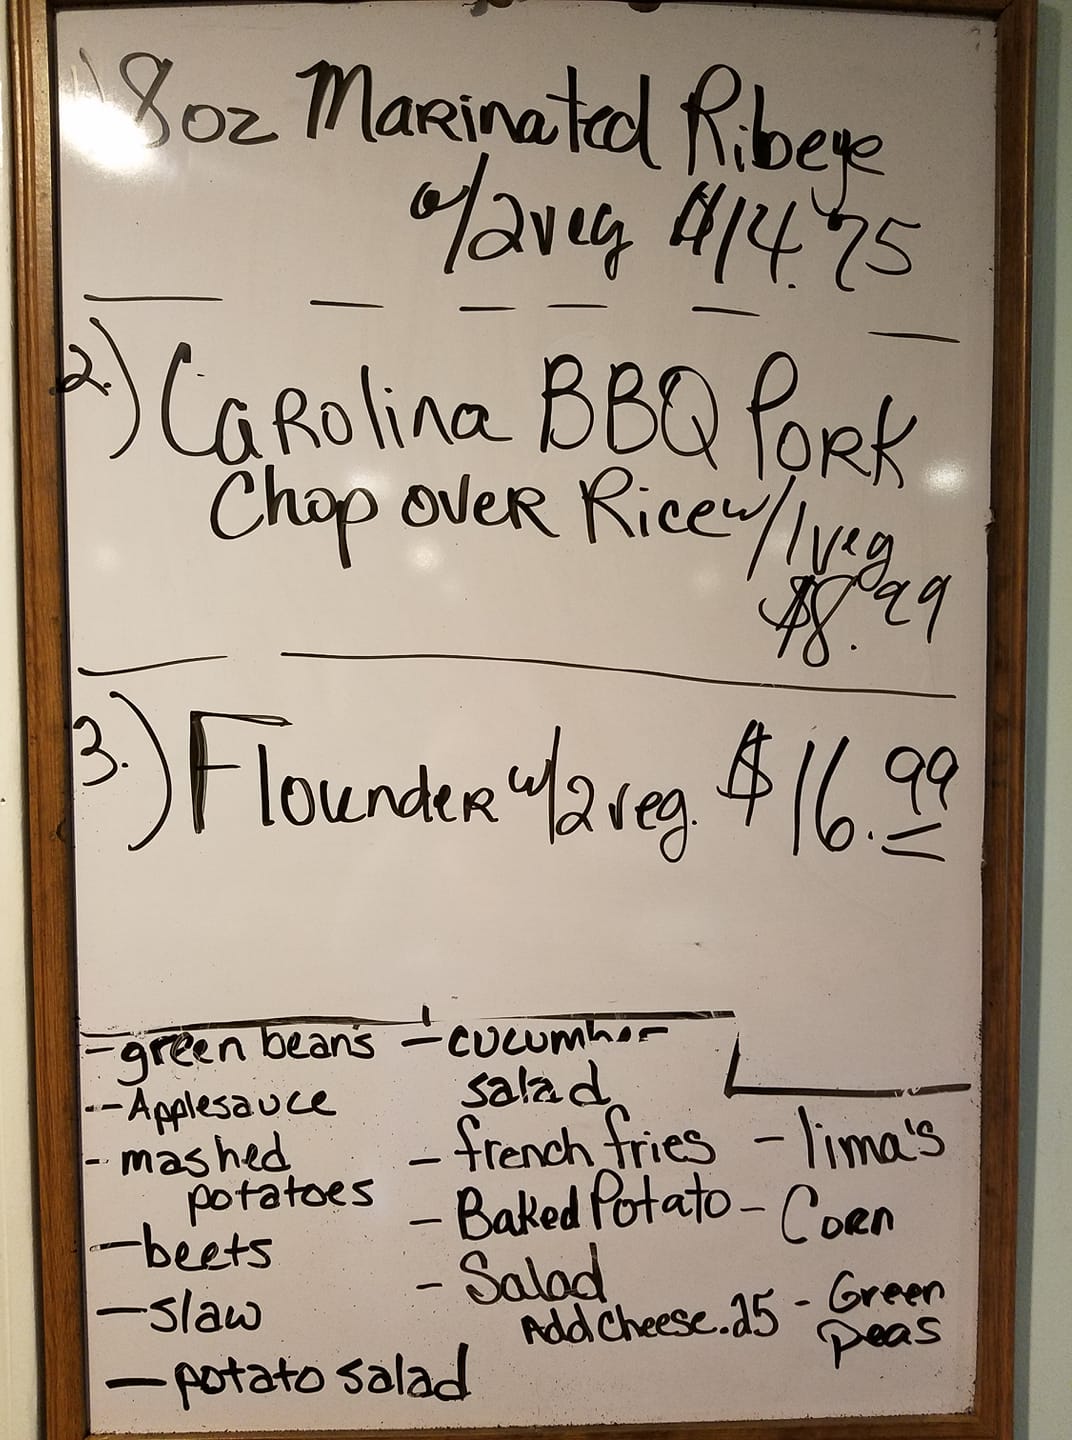 1) 8oz Marinated Ribeye
w/2veg $14.75
2.) Carolina BBQ Pork
Chop over Rice w/1veg
$8.99
3.) Flounder w/2veg. $16.99
- green beans
- Applesauce
- mashed
potatoes
- beets
- slaw
- potato salad
- cucumber
salad
- french fries
- Baked Potato
- Salad
Add Cheese .25
- lima's
- Corn
- Green
peas